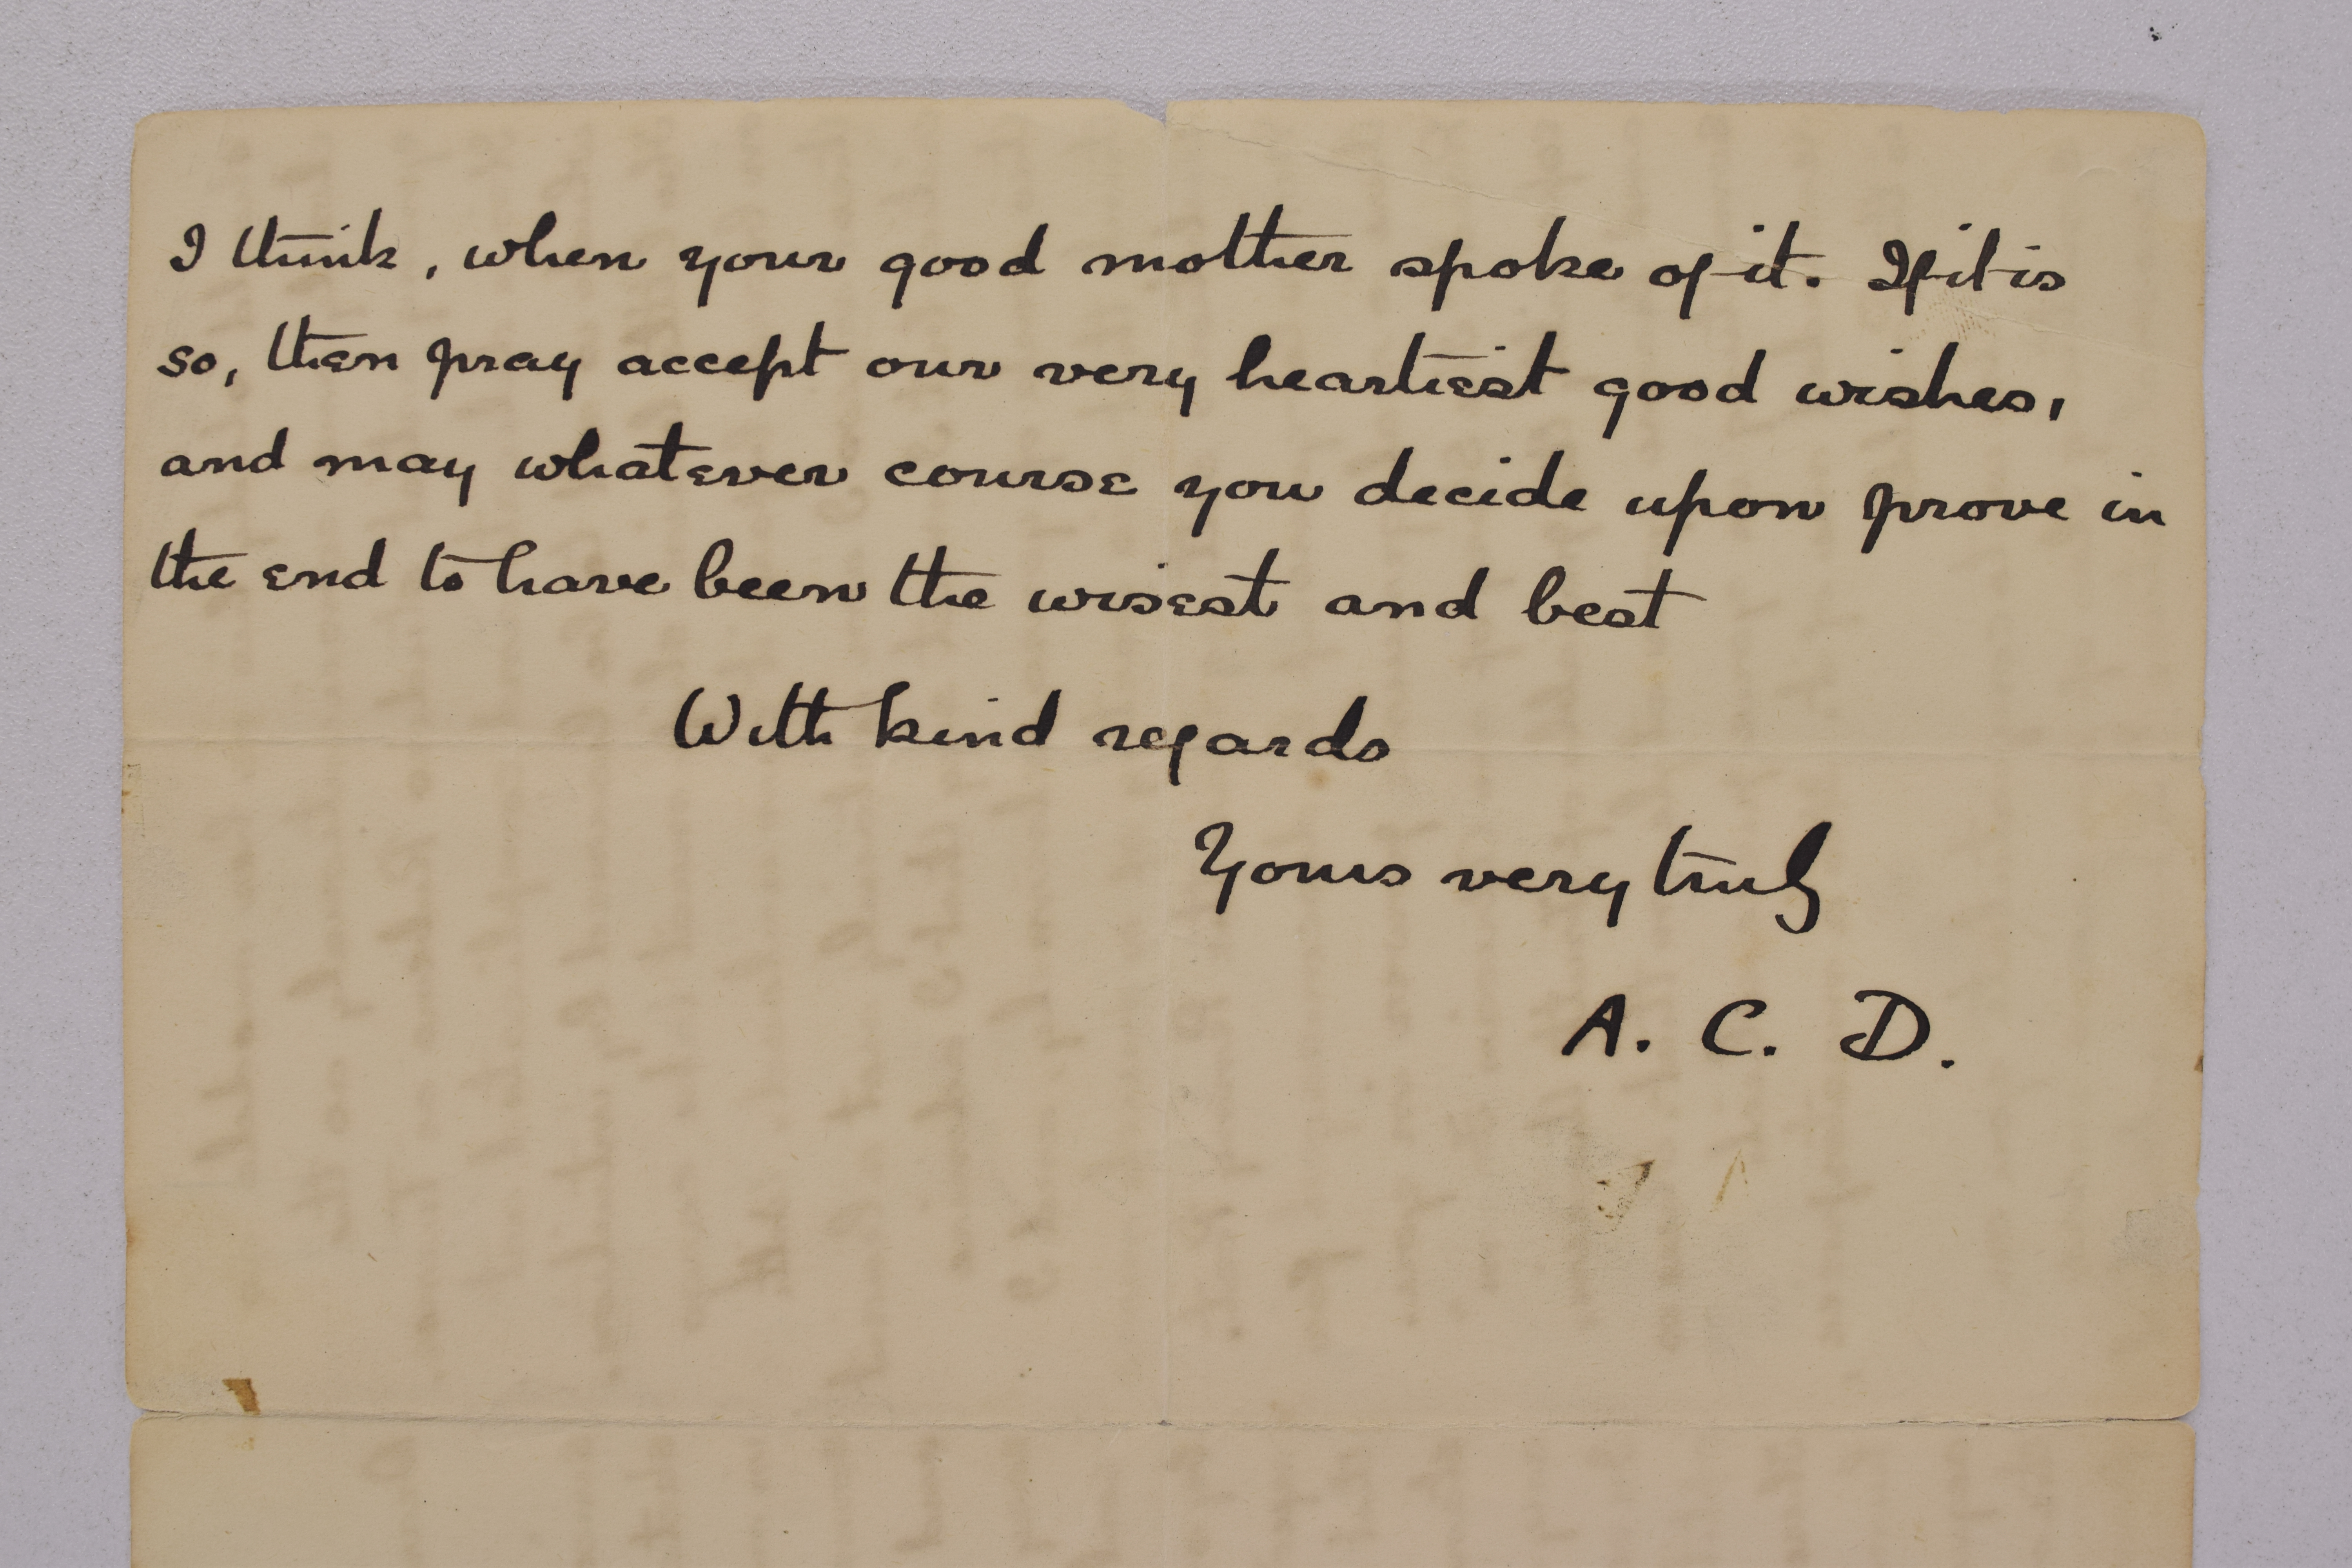 I think, when your good mother spoke of it. If it is
so, then pray accept our very heartiest good wishes,
and may whatever course you decide upon prove in
the end to have been the wisest and best
With kind regards
Yours very truly
A. C. D.